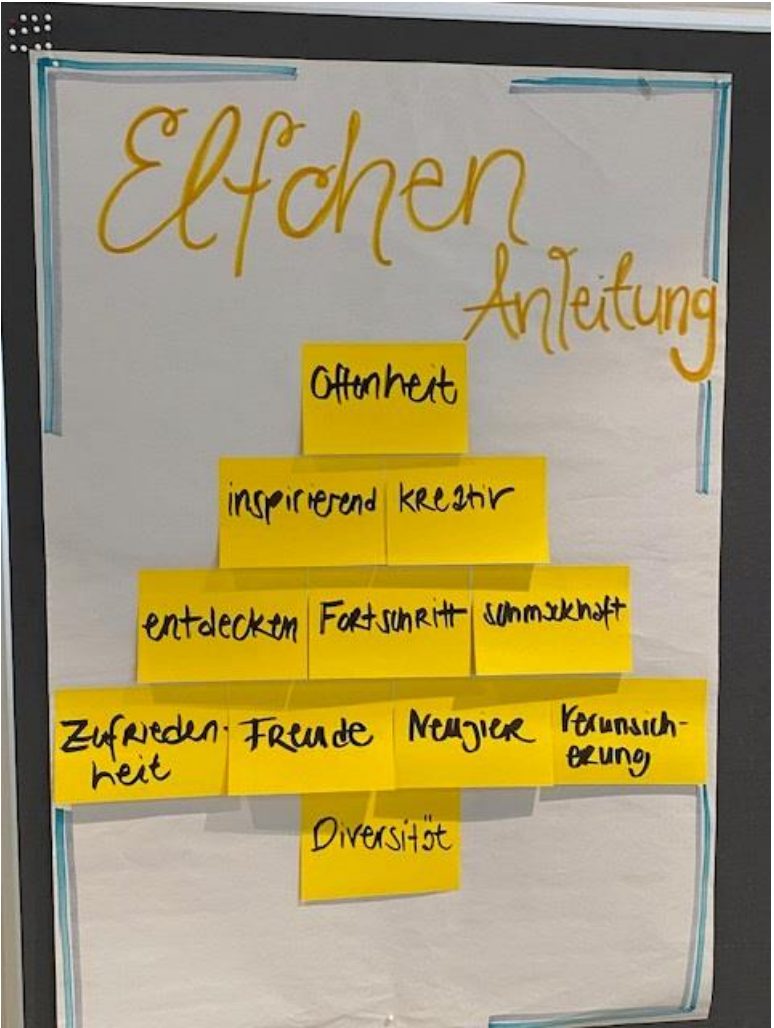 Elfchen
Anleitung
Offenheit
inspirierend kreativ
entdecken Fortschritt schmackhaft
Zufrieden-
heit
Freude Neugier
Verunsich-
erung
Diversität